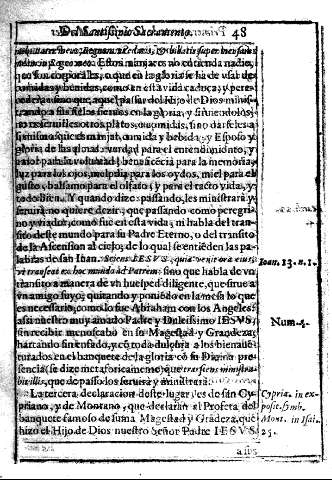 Del Santissimo Sacramento. 48
minio Regno meo. Estos manjares no entienda nadie,
que son corporales, o que en la gloria se ha de vsar de
comidas y beuidas, como en esta vida caduca, y perecedera
sino que, aquel passar del Hijo de Dios ministrando
a sus fieles sieruos en la gloria, y siruiendolos,
no es ministrar otros platos, o comidas, sino darseles a
si mismo que es manjar, comida y bebida, y Esposo y
gloria de las almas: verdad para el entendimiento, y
amor para la voluntad, beneficencia para la memoria,
luz para los ojos, melodia para los oydos, miel para el
gusto, balsamo para el olfato, y para el tacto vida, y
todo bien. Y quando dize: passando, les ministrarà y
seruirà no quiere dezir, que passando como peregrino
y viador, como fue en esta vida, ni habla del transito
deste mundo para su Padre Eterno, o del transito
de la Ascension al cielo, de lo qual se entiēden las palabras
de san Iuan. Sciens IESVS, quia venit hora eius
vt transeat ex hoc mundo ad Patrem: sino que habla de vn
transito a manera de vn huesped diligente, que sirue a
vn amigo suyo, quitando y poniēdo en la mesa lo que
es necessario, como lo fue Abraham con los Angeles:
assi nuestro muy amado Padre y Dulcissimo IESVS,
sin recibir menoscabo en su Magestad y Grandeza,
hartando sin enfado, y cō toda dulçura a los bienauēturados
en el banquete de la gloria cō su Diuina presencia,
se dize metaforicamente que transiens ministrabit
illis, que de passo les seruirà y ministrarà.
La tercera declaracion deste lugar, es de san Cypriano,
y de Montano, que declarā al Profeta del
banquete famoso de suma Magestad y Grādeza, que
hizo el Hijo de Dios nuestro Señor Padre IESVS
Ioan. 13. n. 1.
Num. 4.
Cypria. in exposit. symb.
Mont. in Isai.
25.